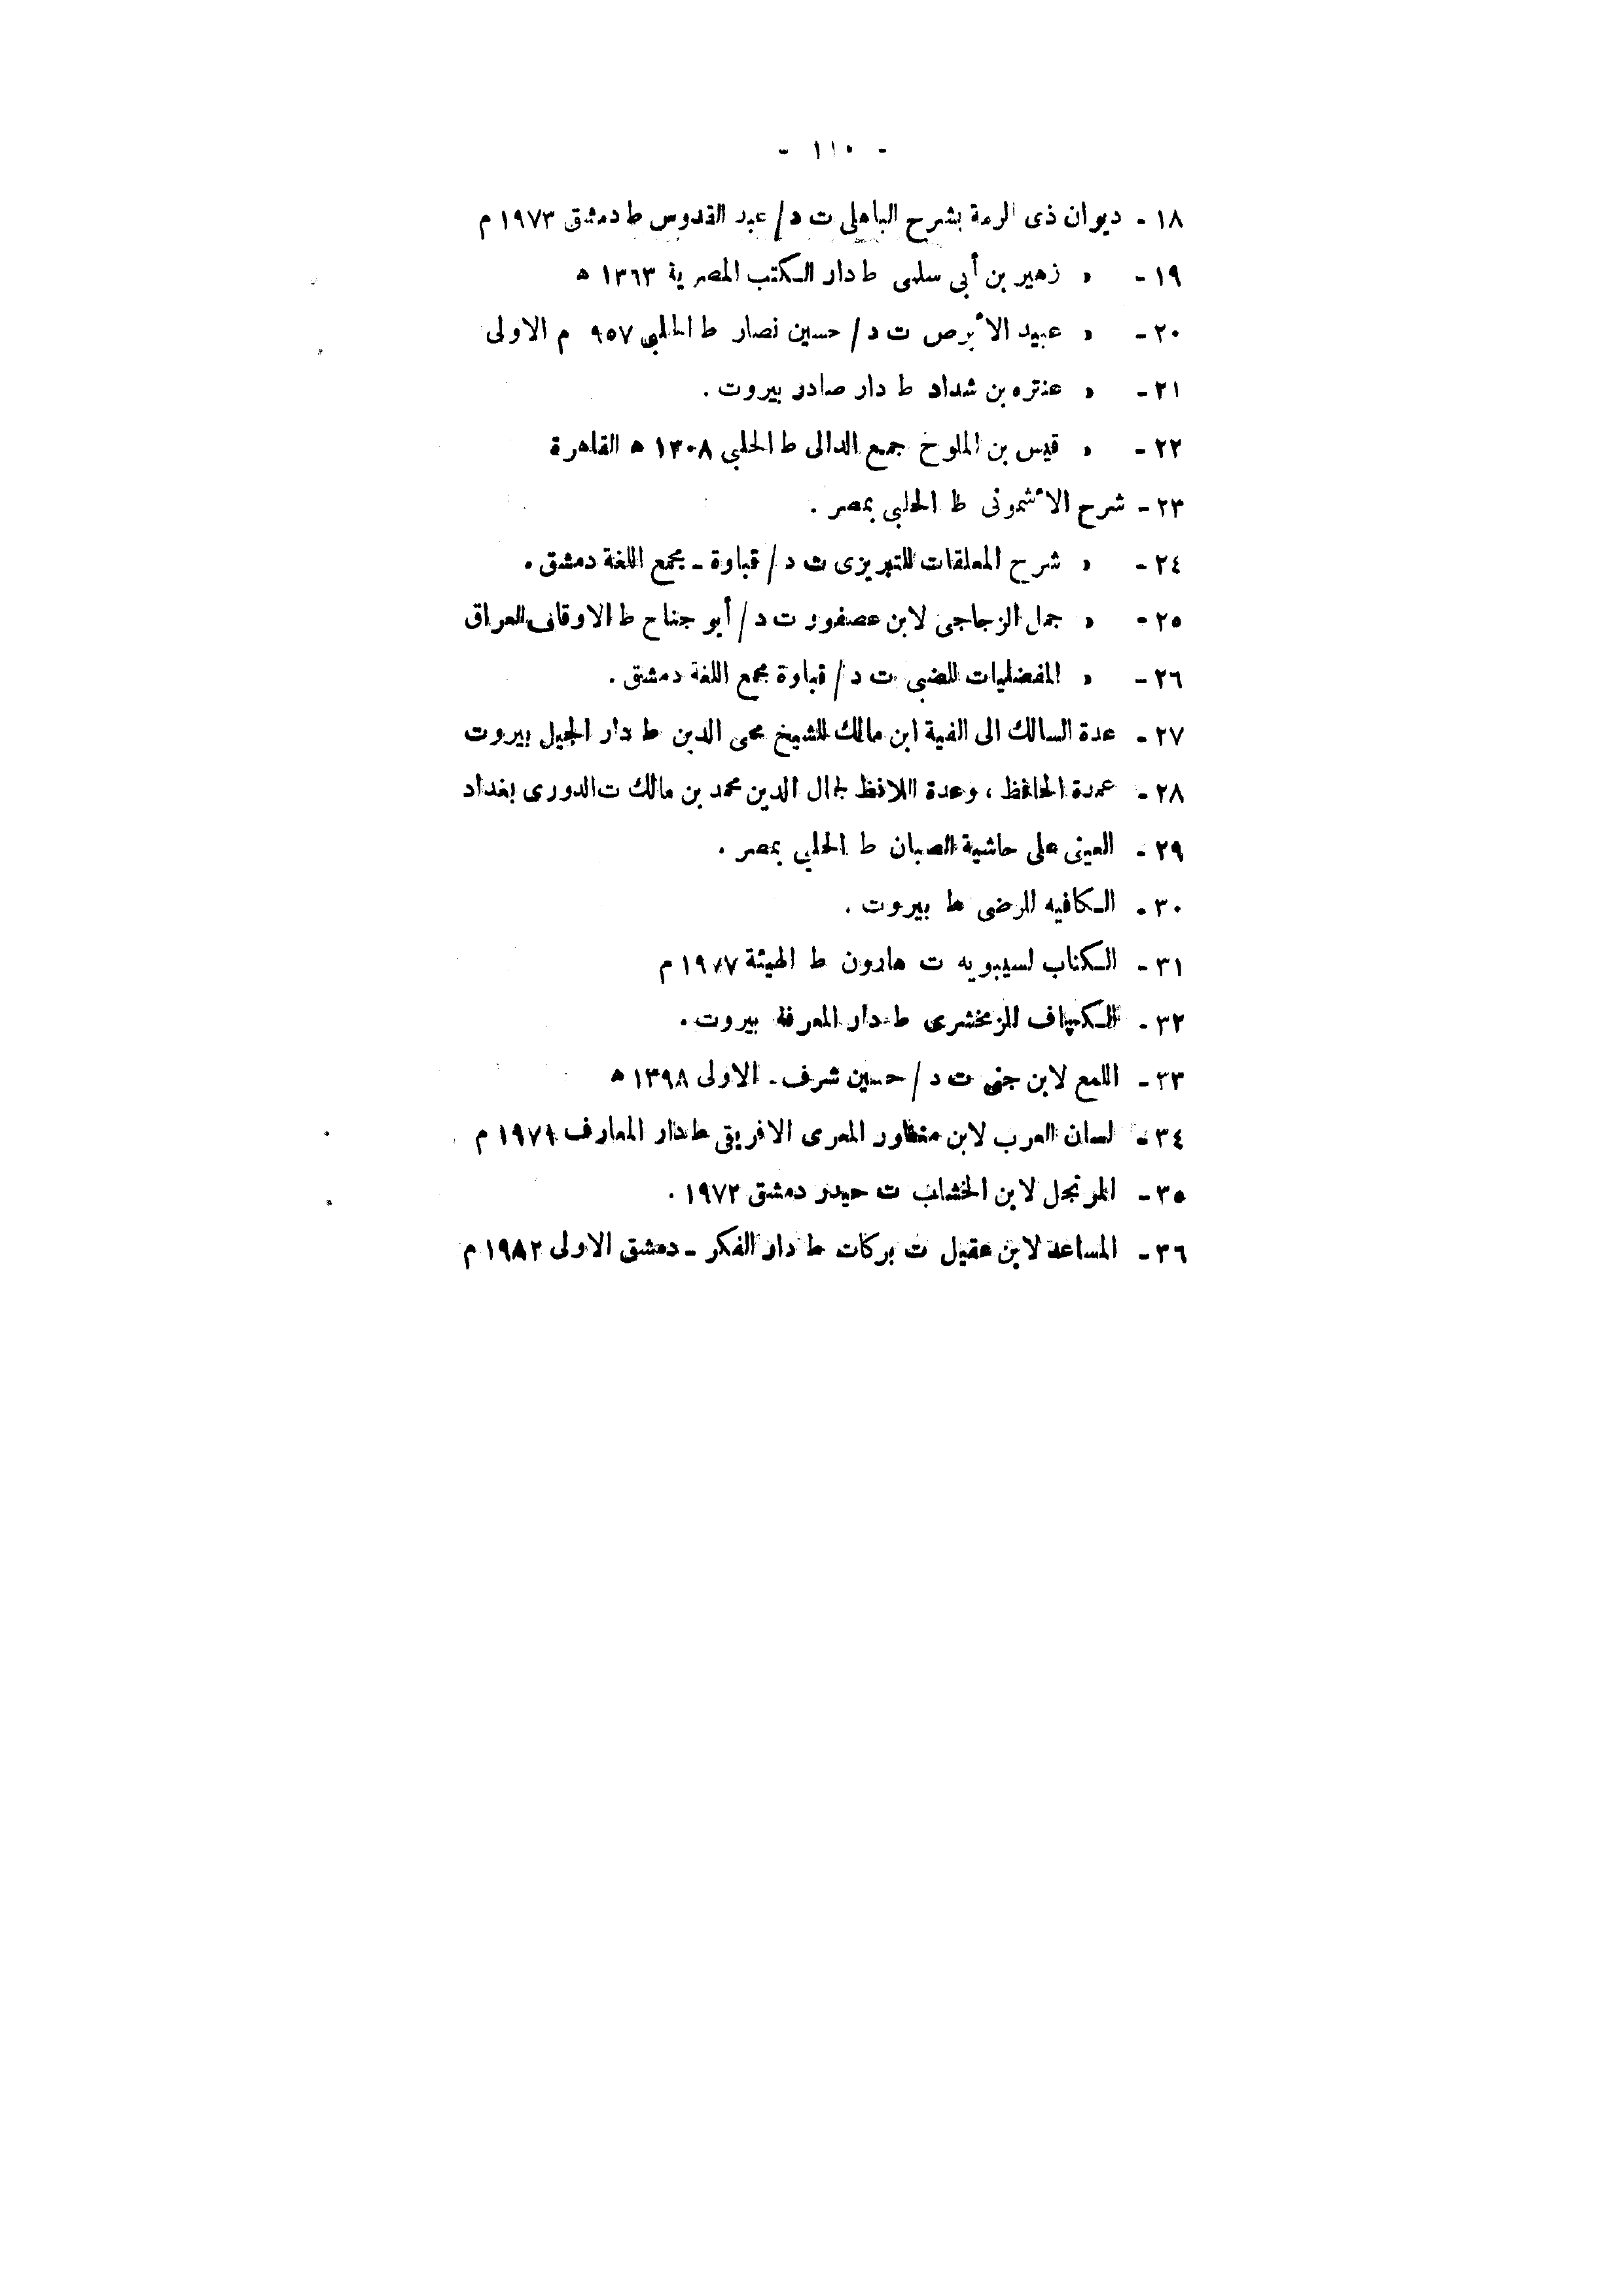 - ١١٠ -
١٨ - ديوان ذى الرمة بشرح الباهلى ت د/ عبد القدوس ط دمشق ١٩٧٣ م
١٩ - » زهير بن أبى سلمى ط دار الكتب المصرية ١٣٦٣ ه
٢٠ - » عبيد الأبرص ت د/ حسين نصار ط الحلبى ٩٥٧ م الاولى
٢١ - » عنتره بن شداد ط دار صادر بيروت .
٢٢ - » قيس بن الملوح جمع الدالى ط الحلبى ١٣٠٨ ه القاهرة
٢٣ - شرح الأشمونى ط الحلبى بمصر .
٢٤ - » شرح المعلقات للتبريزى ت د/ قباوة - مجمع اللغة دمشق .
٢٥ - » جمل الزجاجى لابن عصفور ت د/ أبو جناح ط الاوقاف العراق
٢٦ - » المفضليات للضبى ت د/ قباوة مجمع اللغة دمشق .
٢٧ - عدة السالك الى الفية ابن مالك للشيخ محى الدين ط دار الجيل بيروت
٢٨ - عمدة الحافظ ، وعدة اللافظ لجمال الدين محمد بن مالك ت الدورى بغداد
٢٩ - العينى على حاشية الصبان ط الحلبى بمصر .
٣٠ - الكافيه للرضى ط بيروت .
٣١ - الكتاب لسيبويه ت هارون ط الهيئة ١٩٧٧ م
٣٢ - الكشاف للزمخشرى ط دار المعرفة بيروت .
٣٣ - اللمع لابن جنى ت د/ حسين شرف - الاولى ١٣٩٨ ه
٣٤ - لسان العرب لابن منظور المصرى الافريقى ط دار المعارف م
٣٥ - المرتجل لابن الخشاب ت حيدر دمشق ١٩٧٢ .
٣٦ - المساعد لابن عقيل ت بركات ط دار الفكر - دمشق الاولى ١٩٨٢ م